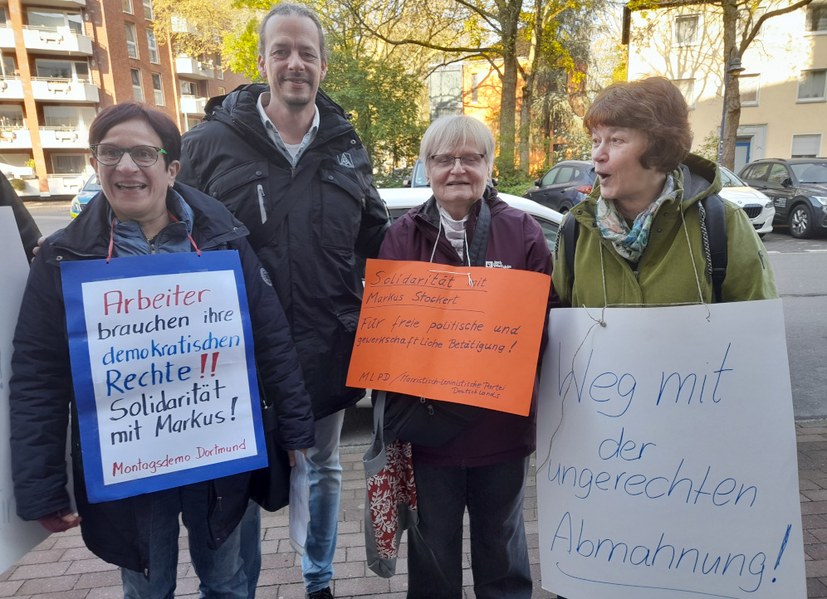 Arbeiter
brauchen ihre
demokratischen
Rechte!!
Solidarität
mit Markus!
Montagsdemo Dortmund
Solidarität mit
Markus Stockert
Für freie politische und
gewerkschaftliche Betätigung!
MLPD / Marxistisch-Leninistische Partei
Deutschlands
Weg mit
der
ungerechten
Abmahnung!